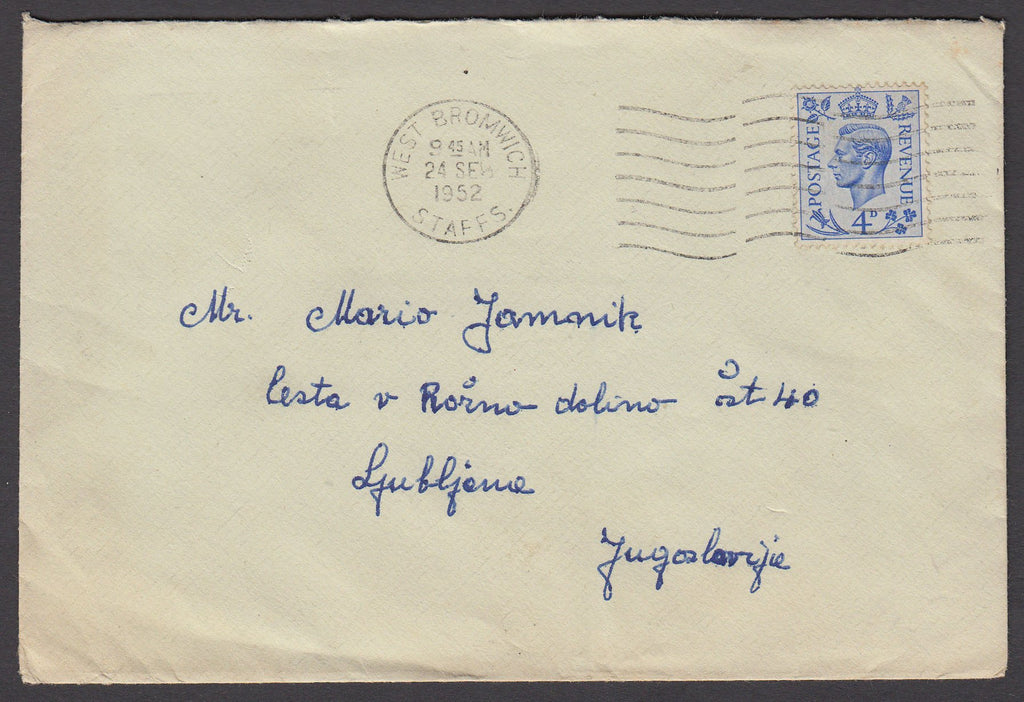 WEST BROMWICH
9 45 AM
24 SEP
1952
STAFFS.
POSTAGE REVENUE
4D
Mr. Mario Jamnik
Cesta v Rožno dolino št 40
Ljubljana
Jugoslavija